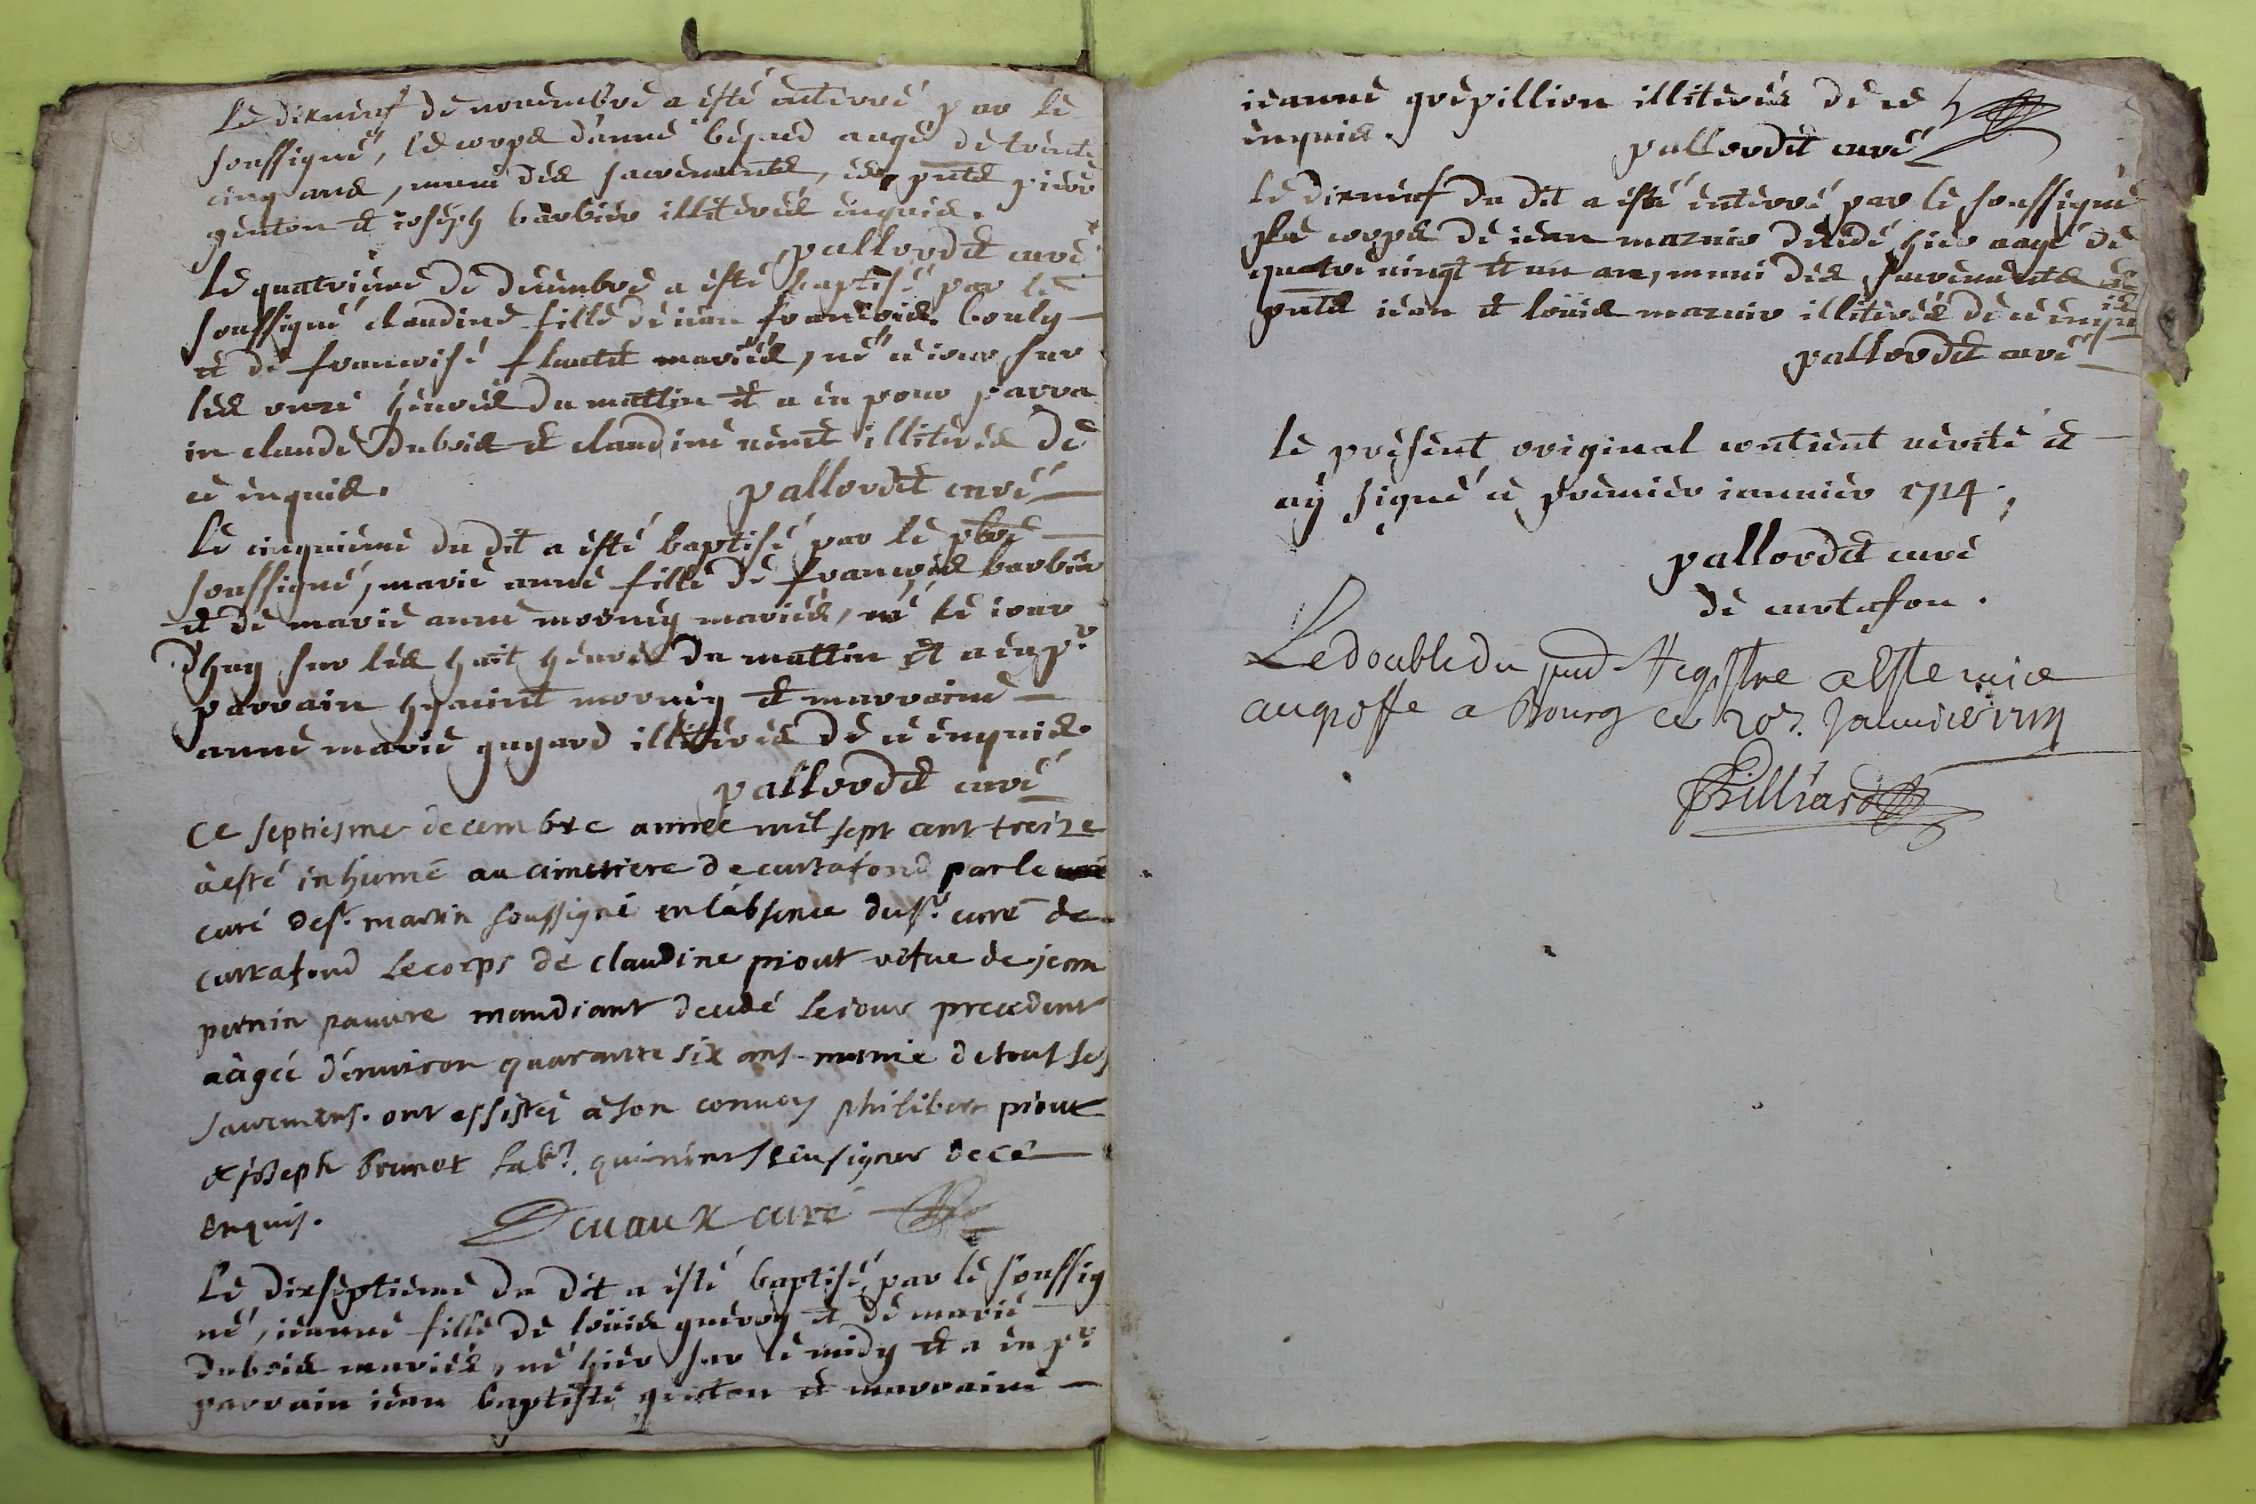 Le dixneuf de novembre a esté enterré par le
soussigné, le corps d'anne begard aagé de trente
cinq ans, muni des sacrements, es pnts pierre
genton et ioseph barbier illiterés enquis.
pallordet curé
Le quatrieme de decembre a esté baptisé par le
soussigné claudine fille de iean francois bouly
et de francoise flautet mariés, né ce iour sur
les onze heures du mattin et a eu pour parra
in claude Dubois et claudine venet illiterés de
ce enquis.
pallordet curé
Le cinquieme du dit a esté baptisé par le pbre
soussigné, marie anne fille de francois barbier
et de marie anne morney mariés, né le iour
d'huy sur les huit heures du mattin et a eu pr
parrain hyacint morney et marraine
anne marie gugard illiterés de ce enquis.
pallordet curé
Ce septiesme decembre année mil sept cent treize
à esté inhumé au cimetiere de curtafond par le
curé de st martin soussigné en l'absence du sr curé de
curtafond Le corps de claudine piout vefue de jean
pernin pauure mandiant decedé Le iour precedent
aàgée d'enuiron quarante six ans munie de tous les
sacremens. ont essistes à son conuoy philibert piout
& joseph brunet labr. qui n'ont sceu signer de ce
enquis.
Devaux curé
Le dixseptieme du dit a esté baptisé par le soussig
né, ieanne fille de loüis guerry et de marie
dubois mariés, né hier sur le midy et a eu pr
parrain iean baptiste genton et marraine
ieanne grepillion illiterés de ce
enquis.
pallordet curé
Le dixneuf du dit a esté enterré par le soussigné
Le corps de iean maznir decedé hier aagé de
quatre vingt et un an, muni des sacrements es
pnts iean et loüis maznir illiterés de ce enqu
is
pallordet curé
Le present original contient verité et
ay signé ce premier ianuier 1714.
pallordet curé
de curtafon.
Le double du pnt Registre a Esté mis
au greffe a Bourg ce 20e. Januier 1714
Billiard